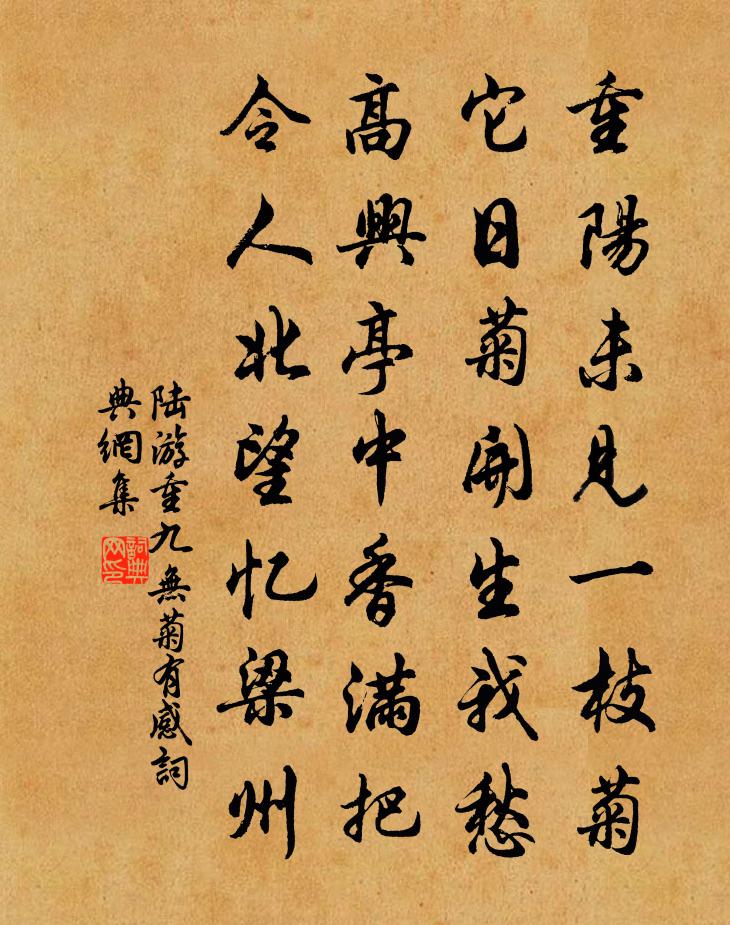 重陽未見一枝菊
它日菊開生我愁
高興亭中香滿把
令人北望忆梁州
陆游重九無菊有感詞
典網集
詞典
网印